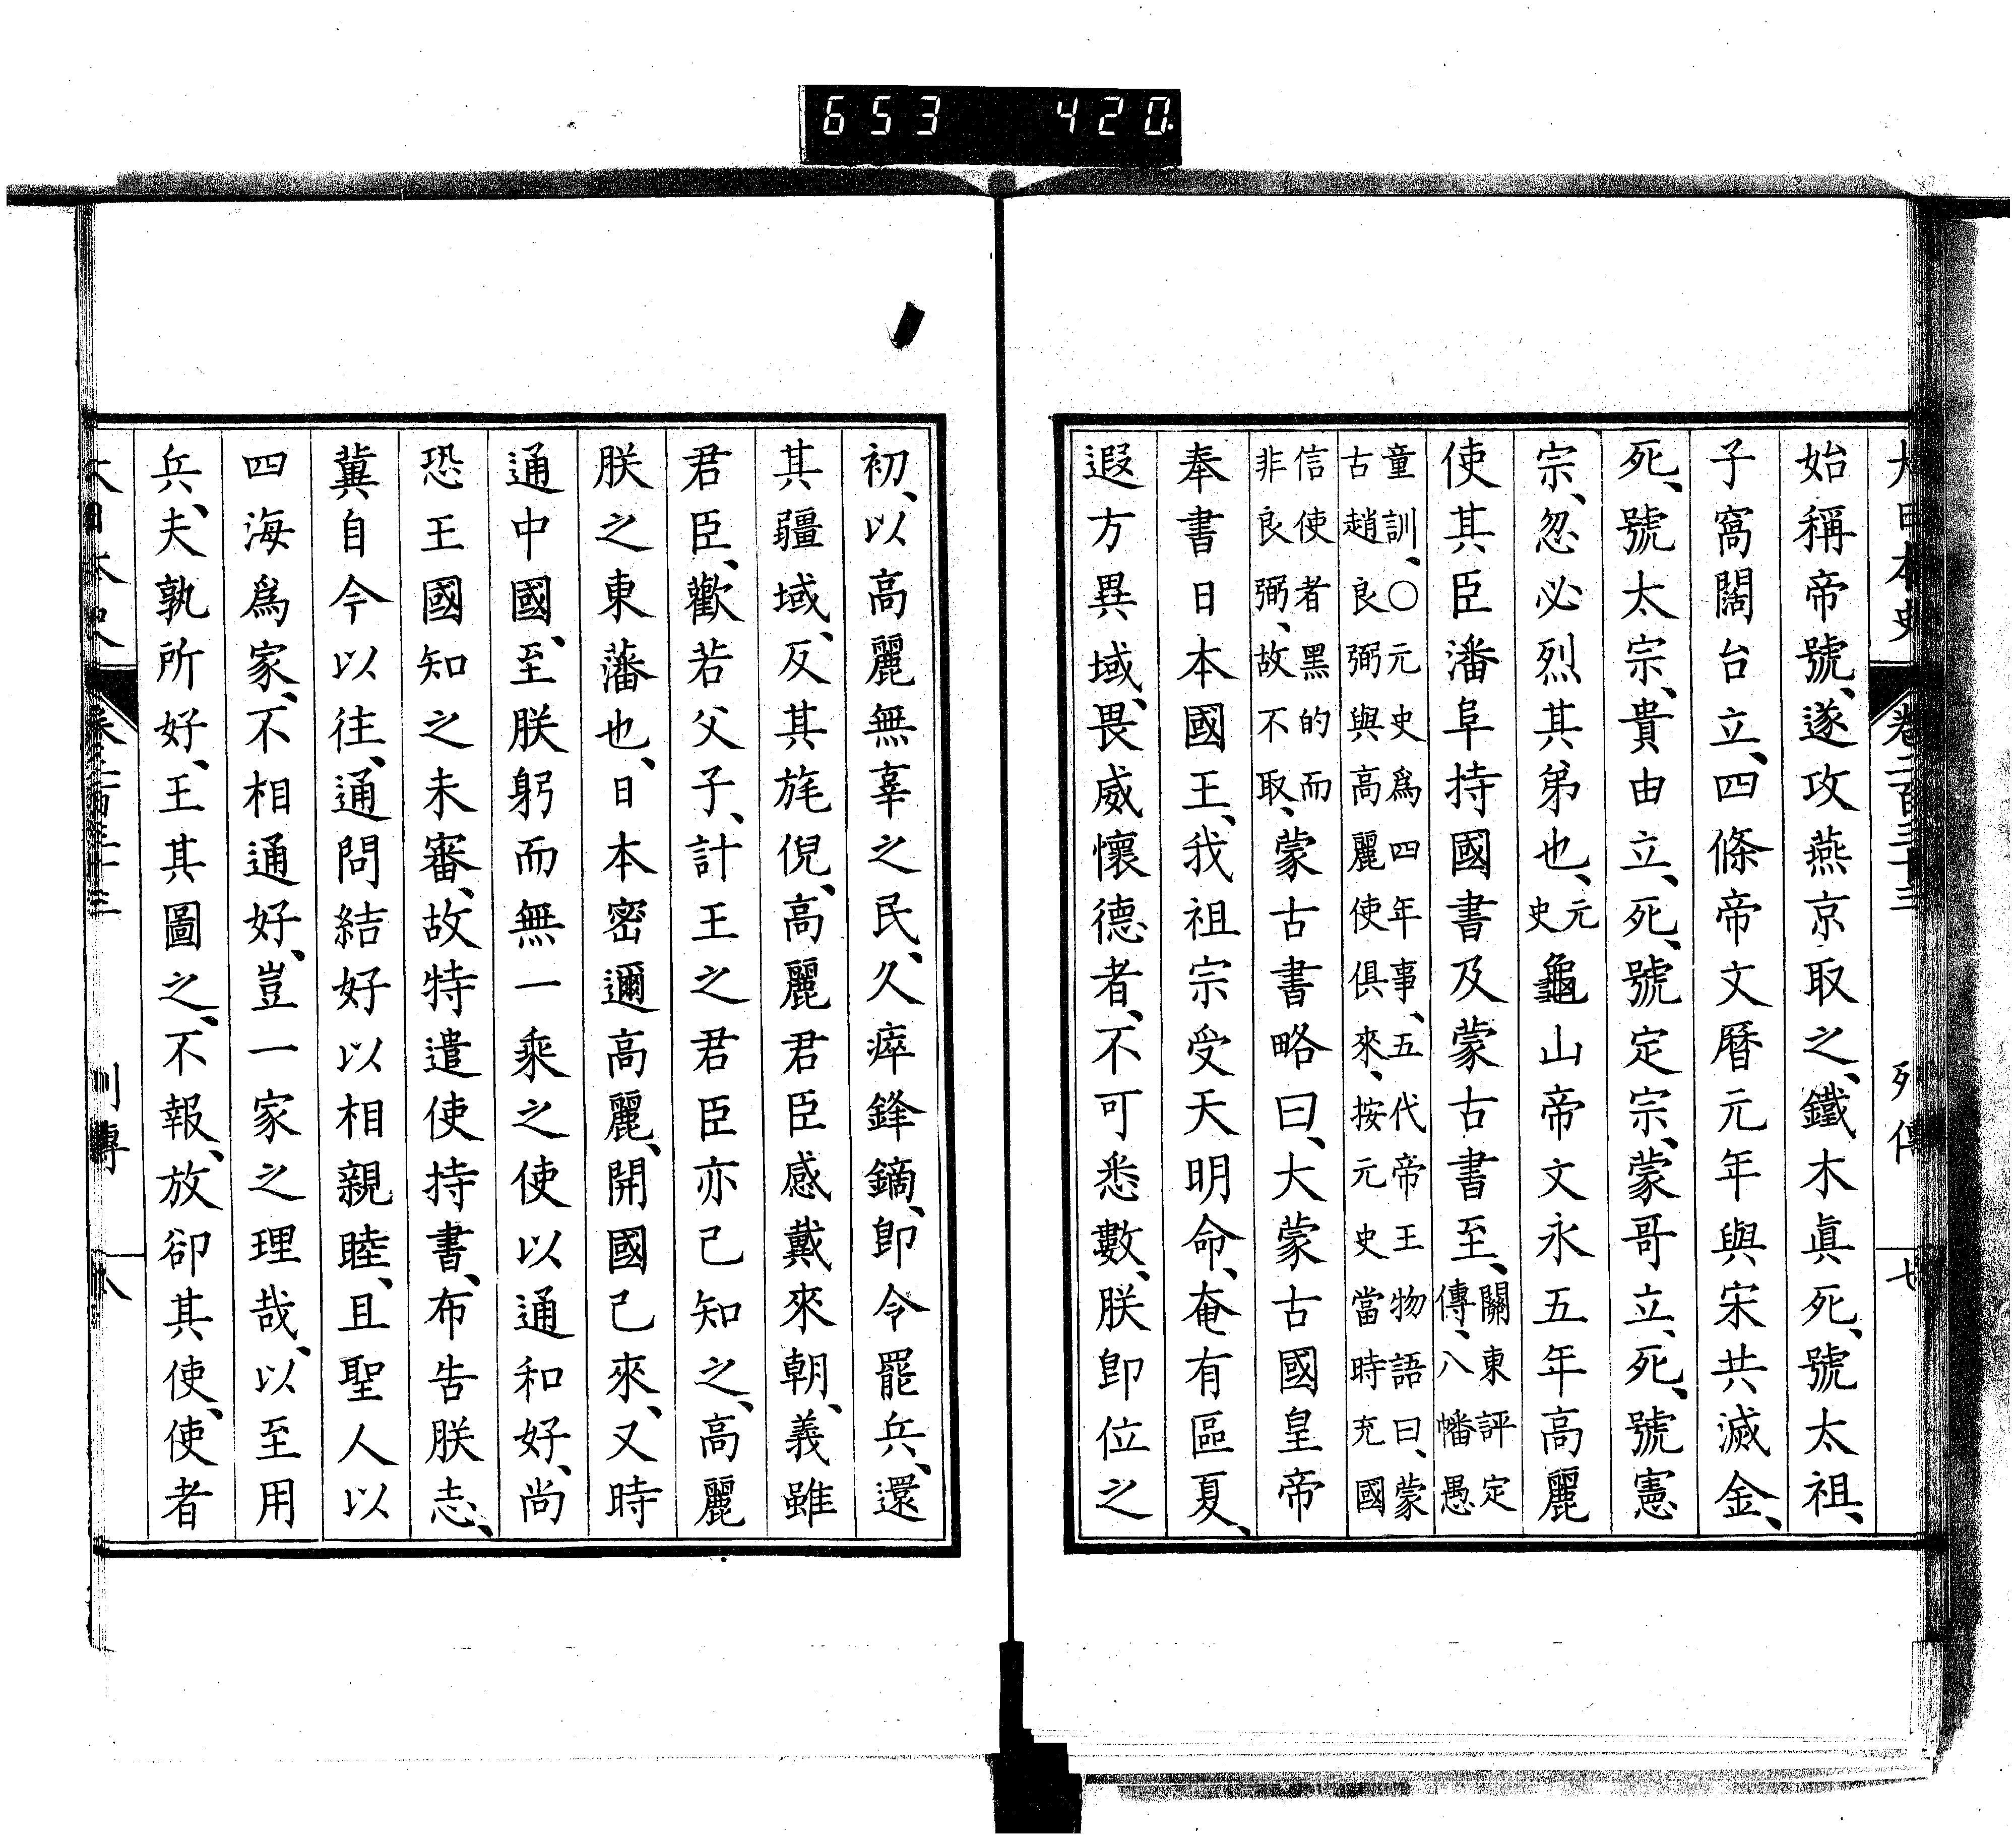 653 420
大日本史 卷二百三十三 列傳 七
始稱帝號、遂攻燕京取之、鐵木眞死、號太祖、
子窩闊台立、四條帝文曆元年與宋共滅金、
死、號太宗、貴由立、死、號定宗、蒙哥立、死、號憲
宗、忽必烈其弟也、元史龜山帝文永五年高麗
使其臣潘阜持國書及蒙古書至、關東評定傳、八幡愚
童訓、〇元史爲四年事、五代帝王物語曰、蒙
古趙良弼與高麗使俱來、按元史當時充國
信使者黑的而非良弼、故不取、蒙古書略曰、大蒙古國皇帝
奉書日本國王、我祖宗受天明命、奄有區夏、
遐方異域、畏威懷德者、不可悉數、朕卽位之
初、以高麗無辜之民、久瘁鋒鏑、卽令罷兵、還
其疆域、反其旄倪、高麗君臣感戴來朝、義雖
君臣、歡若父子、計王之君臣亦已知之、高麗
朕之東藩也、日本密邇高麗、開國已來、又時
通中國、至朕躬而無一乘之使以通和好、尚
恐王國知之未審、故特遣使持書、布告朕志、
冀自今以往、通問結好以相親睦、且聖人以
四海爲家、不相通好、豈一家之理哉、以至用
兵、夫孰所好、王其圖之、不報、放卻其使、使者
大日本史 卷二百三十三 列傳 八